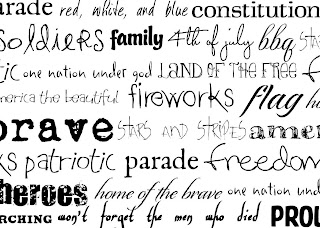 arade red, white, and blue constitution
soldiers family 4th of july bbq sta
tic one nation under god LAND OF THE FREE f
merica the beautiful fireworks flag ho
brave STARS AND STRIPES amer
ks patriotic parade freedom
heroes home of the brave one nation und
RCHING won't forget the men who died PROU